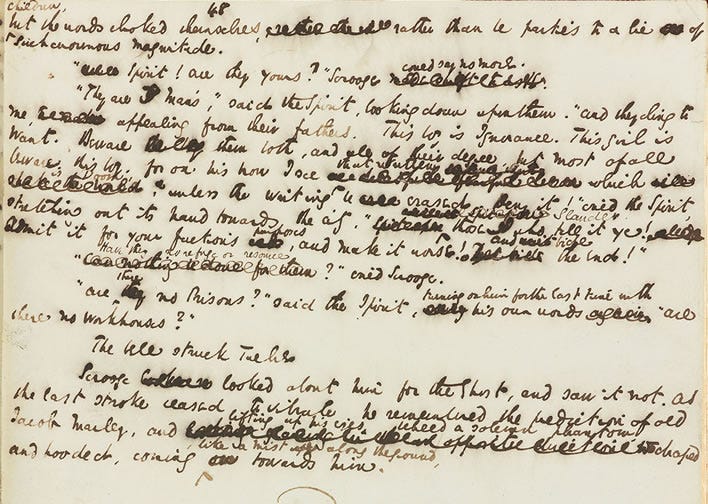 children,
48
but the words choked themselves, rather than be parties to a lie of
such enormous magnitude.
could say no more.
"Spirit! are they yours?" Scrooge
"They are Man's," said the Spirit, looking down upon them. "and they cling to
me, appealing from their fathers. This boy is Ignorance. This girl is
Want. Beware them both, and all of their degree, but most of all
beware this boy, for on his brow I see that written which
is Doom, unless the writing be erased. Deny it!" cried the Spirit,
stretching out its hand towards the city. "Slander those who tell it ye!
Admit it for your factious purposes, and make it worse! And bide the End!"
Have they no refuge or resource
"?" cried Scrooge.
"Are there no Prisons?" said the Spirit, turning on him for the last time with his own words "are
there no workhouses?"
The bell struck Twelve
Scrooge looked about him for the Ghost, and saw it not. As
the last stroke ceased to vibrate, he remembered the prediction of old
Jacob Marley, and lifting up his eyes, beheld a solemn phantom draped
and hooded, coming like a mist along the ground, towards him.